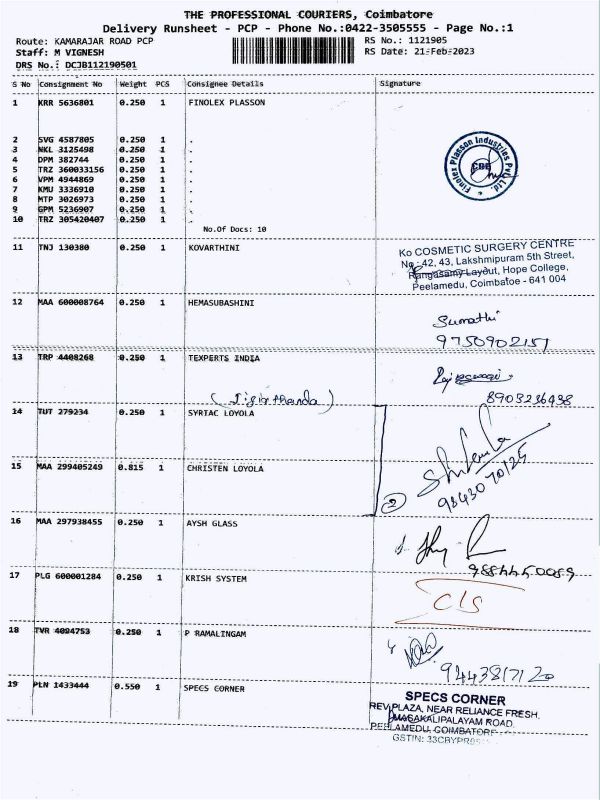 THE PROFESSIONAL COURIERS, Coimbatore
Delivery Runsheet - PCP - Phone No.:0422-3505555 - Page No.:1
Route: KAMARAJAR ROAD PCP
RS No.: 1121905
Staff: M VIGNESH
RS Date: 21-Feb-2023
DRS No.: DCJB112190501
S No Consignment No Weight PCS Consignee Details Signature
1 KRR 5636801 0.250 1 FINOLEX PLASSON
2 SVG 4587805 0.250 1 .
3 NKL 3125498 0.250 1 .
4 DPM 382744 0.250 1 .
5 TRZ 360033156 0.250 1 .
6 VPM 4944869 0.250 1 .
7 KMU 3336910 0.250 1 .
8 MTP 3026973 0.250 1 .
9 GPM 5236907 0.250 1 .
10 TRZ 305420407 0.250 1 .
No.Of Docs: 10
Finolex Plasson Industries Pvt. Ltd.
CBE
11 TNJ 130380 0.250 1 KOVARTHINI
Ko COSMETIC SURGERY CENTRE
No : 42, 43, Lakshmipuram 5th Street,
Rangasamy Layout, Hope College,
Peelamedu, Coimbatoe - 641 004
12 MAA 600008764 0.250 1 HEMASUBASHINI
Sumathi
9750902151
13 TRP 4408268 0.250 1 TEXPERTS INDIA
8903236498
14 TUT 279234 0.250 1 SYRIAC LOYOLA
15 MAA 299405249 0.815 1 CHRISTEN LOYOLA
2
9843070125
16 MAA 297938455 0.250 1 AYSH GLASS
17 PLG 600001284 0.250 1 KRISH SYSTEM
C/s
18 TVR 4094753 0.250 1 P RAMALINGAM
9443817120
19 PLN 1433444 0.550 1 SPECS CORNER
SPECS CORNER
REV PLAZA, NEAR RELIANCE FRESH,
MASAKALIPALAYAM ROAD,
PEELAMEDU, COIMBATORE
GSTIN: 33CBYPR05